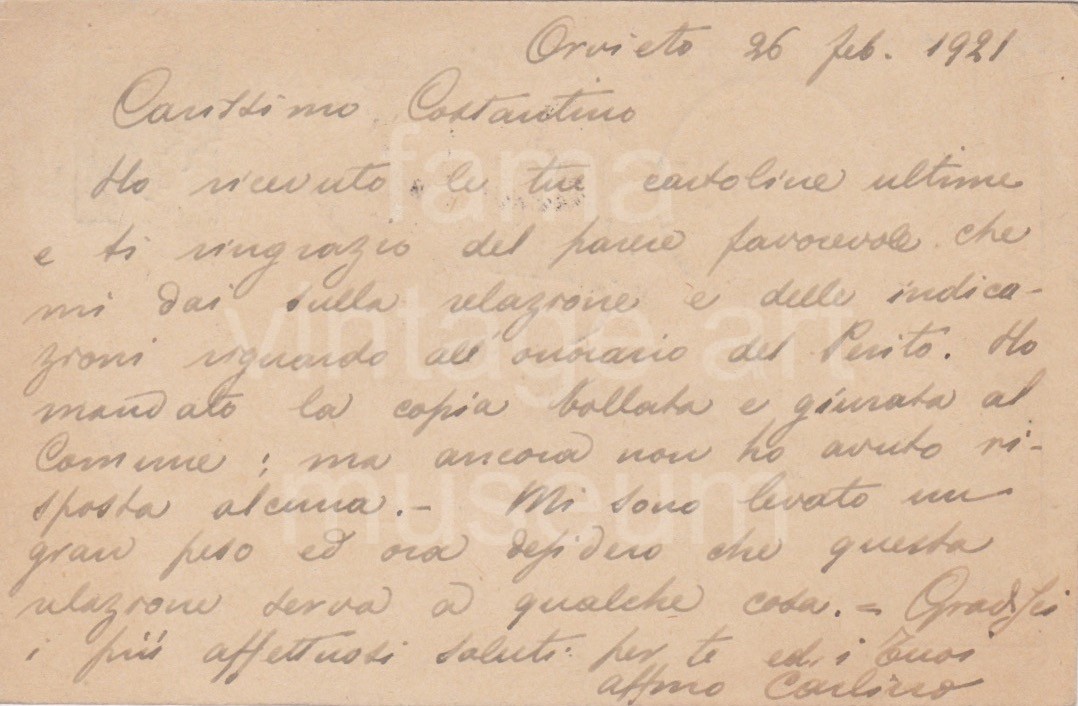 Orvieto 26 feb. 1921
Carissimo Costantino
Ho ricevuto le tue cartoline ultime
e ti ringrazio del parere favorevole che
mi dai sulla relazione e delle indica-
zioni riguardo all'onorario del Perito. Ho
mandato la copia bollata e giurata al
Comune; ma ancora non ho avuto ri-
sposta alcuna. - Mi sono levato un
gran peso ed ora desidero che questa
relazione serva a qualche cosa. = Gradisci
i più affettuosi saluti per te ed i tuoi
affmo Carlino
fama
vintage art
museum